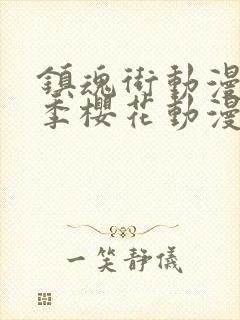 鎮魂街動漫
季櫻花動漫
一笑靜儀